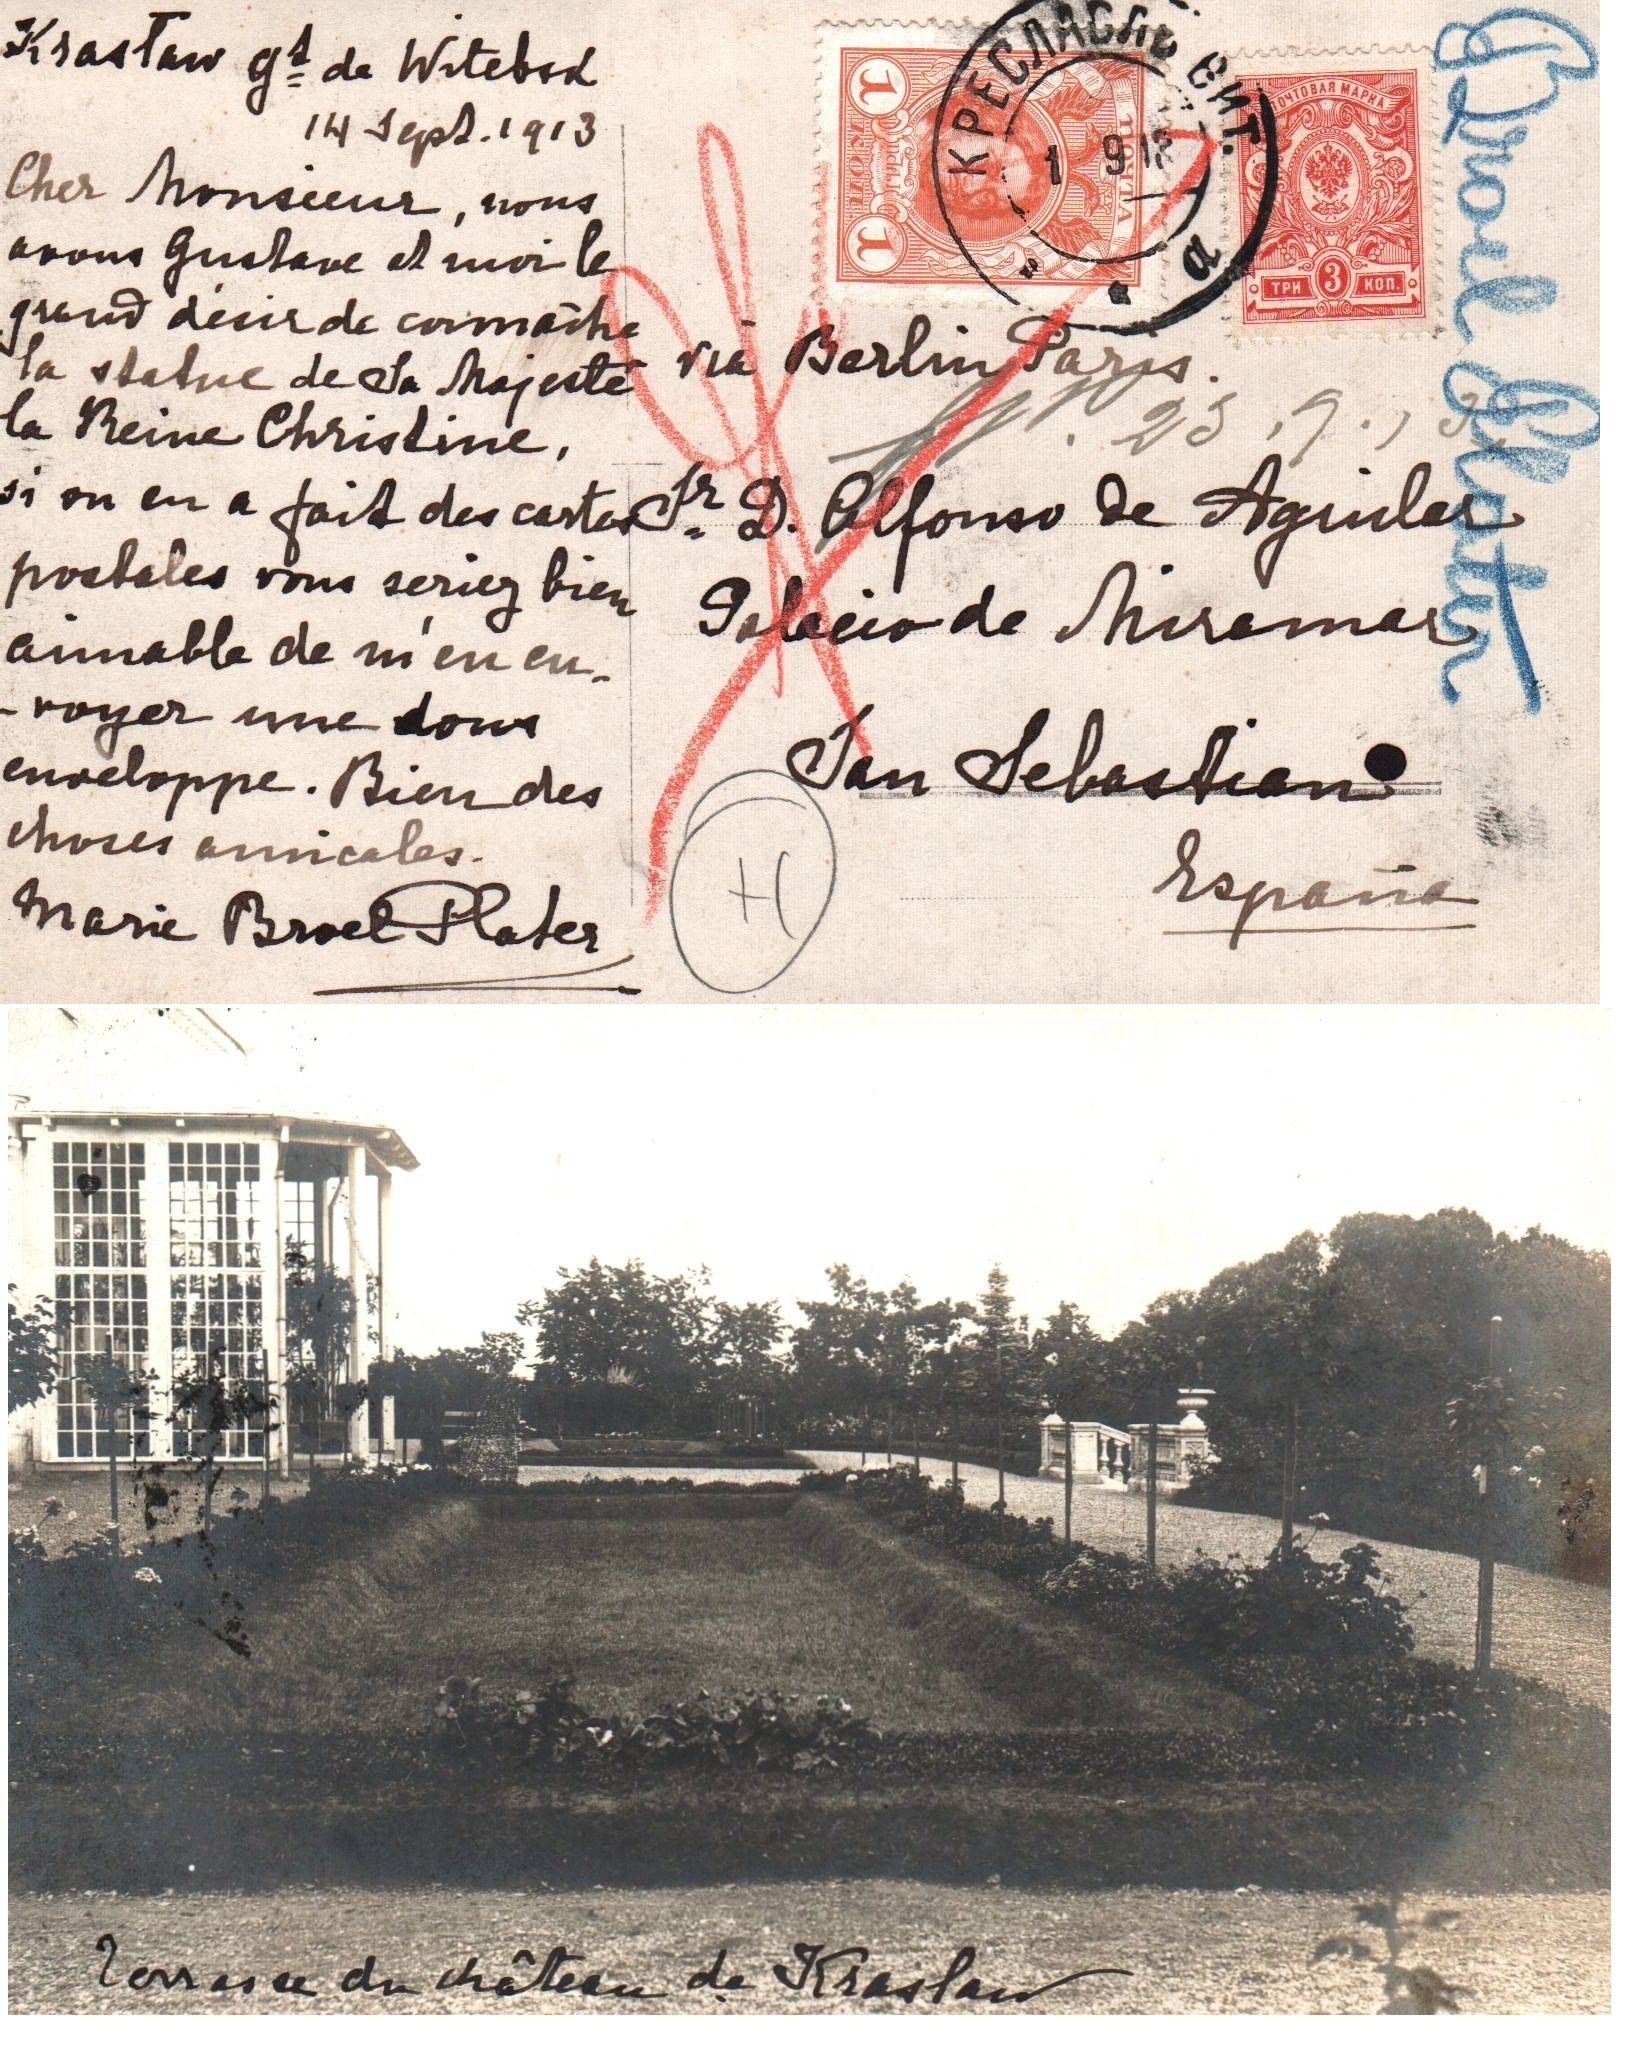 Krasław gt de Witebsk
14 Sept. 1913
Cher Monsieur, nous
avons Gustave et moi le
grand désir de connaître
la statue de Sa Majesté
la Reine Christine,
si on en a fait des cartes
postales vous seriez bien
aimable de m'en en-
-voyer une sous
enveloppe. Bien des
choses amicales.
Marie Broel Plater
1 1
1 1
ПОЧТА
КРЕСЛАВКА ВИТ.
1 9 13
ПОЧТОВАЯ МАРКА
ТРИ 3 КОП.
via Berlin Paris.
25.9.13
Sr. D. Alfonso de Aguilar
Palacio de Miramar
San Sebastian
España
H
Broel Plater
Terrasse du château de Krasław